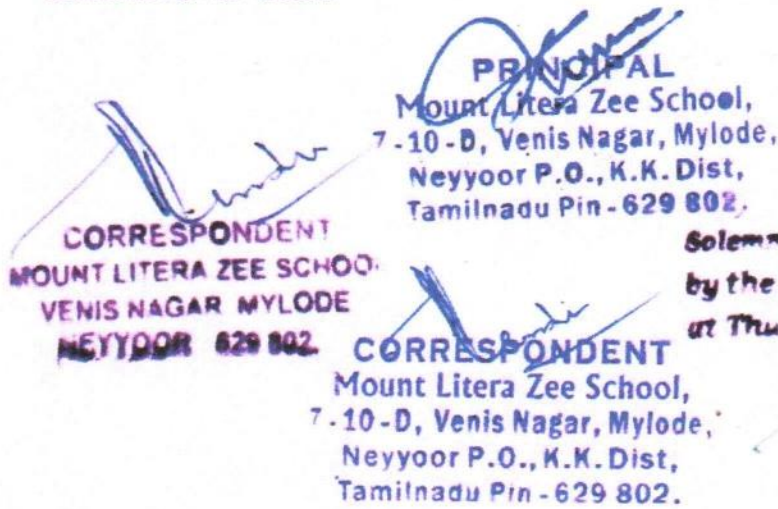 PRINCIPAL
Mount Litera Zee School,
7-10-D, Venis Nagar, Mylode,
Neyyoor P.O., K.K. Dist,
Tamilnadu Pin - 629 802.
CORRESPONDENT
MOUNT LITERA ZEE SCHOO
VENIS NAGAR MYLODE
NEYYOOR 629 802.
by the
at
CORRESPONDENT
Mount Litera Zee School,
7-10-D, Venis Nagar, Mylode,
Neyyoor P.O., K.K. Dist,
Tamilnadu Pin - 629 802.